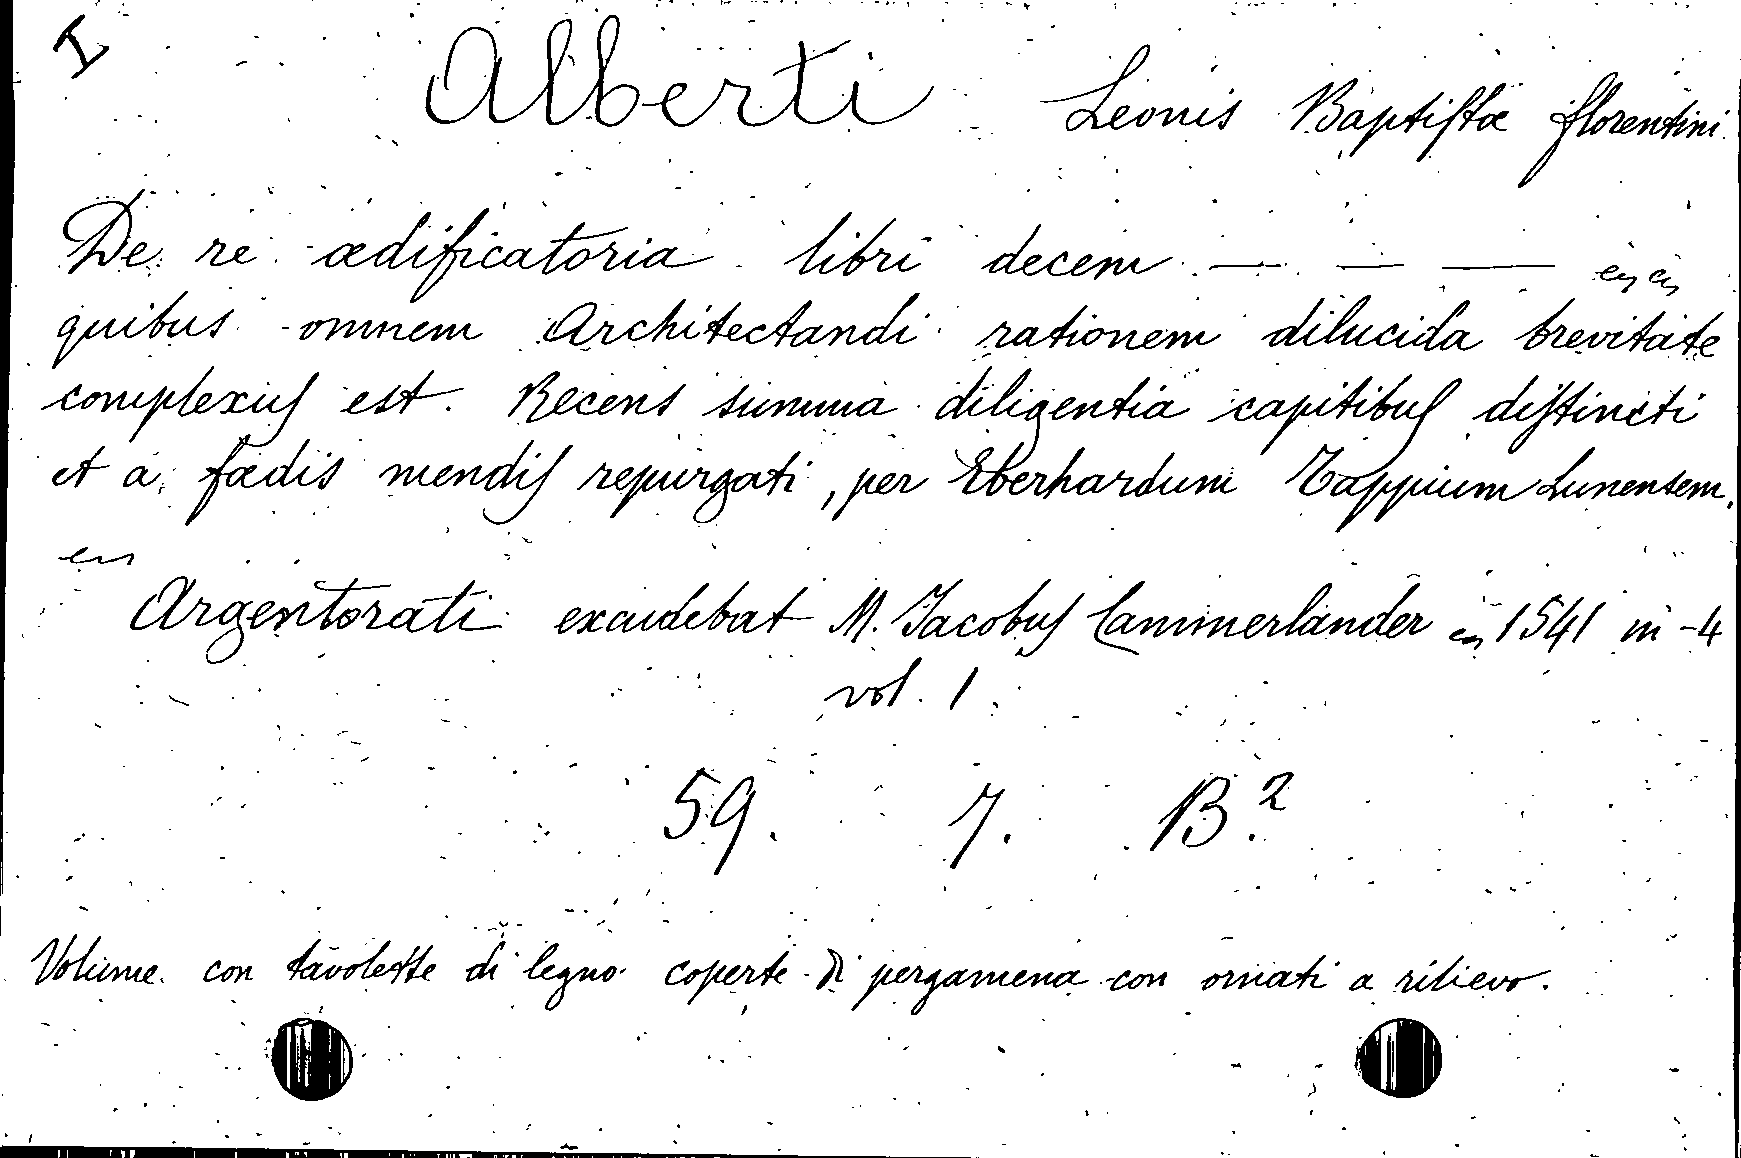 I
Alberti Leonis Baptiſtæ florentini
De re ædificatoria libri decem — — —
quibus omnem Architectandi rationem dilucida brevitate
complexuſ est. Recens summa diligentia capitibuſ diſtincti
et a fœdis mendiſ repurgati, per Eberhardum Tappium Lunensem.
Argentorati excudebat M. Jacobuſ Cammerlander 1541 in-4
vol. 1.
59. 7. B².
Volume con tavolette di legno coperte di pergamena con ornati a rilievo.